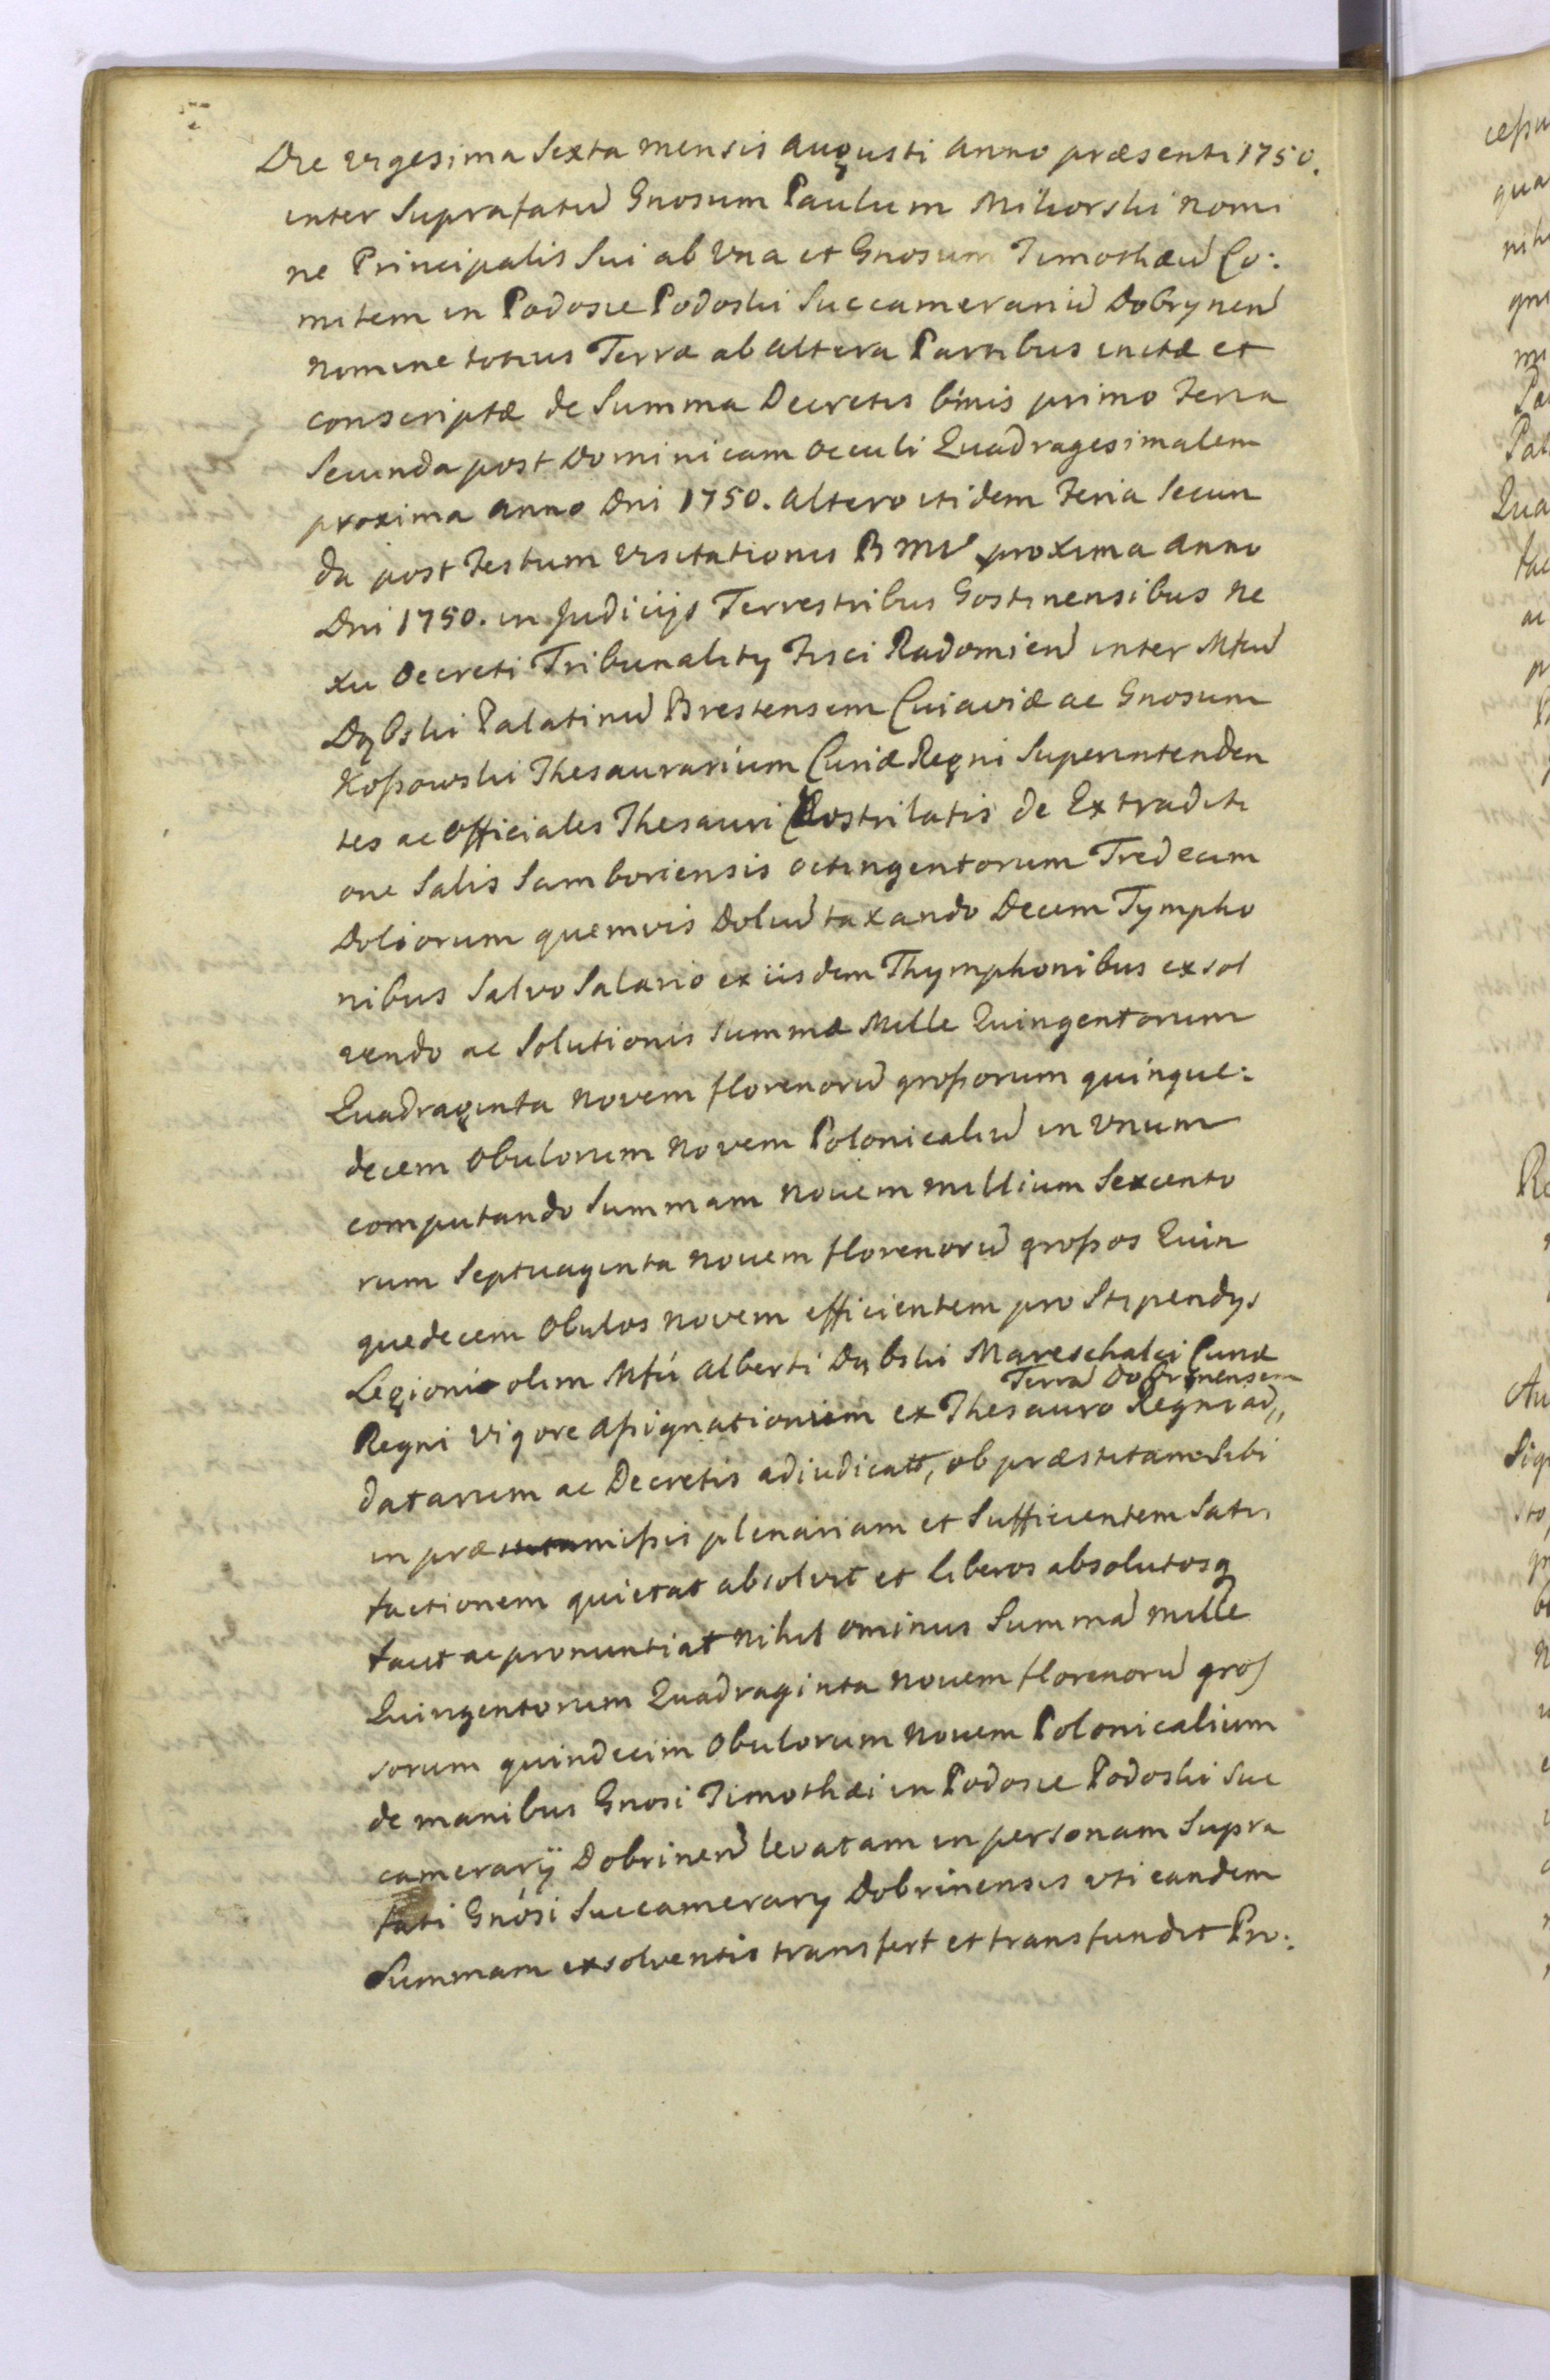 Die vigesima Sexta mensis Augusti Anno præsenti 1750.
inter Suprafatum Gnosum Paulum Miliorski nomi
ne Principalis Sui ab Una et Gnosum Timothæum Co:
mitem in Podosie Podoski Succamerarium Dobrynen
nomine totius Terræ ab altera Partibus initæ et
conscriptæ de Summa Decretis binis primo Feria
Secunda post Dominicam Occuli Quadragesimalem
proxima Anno Dni 1750. altero itidem Feria Secun
da post Festum Visitationis B M V proxima Anno
Dni 1750. in Judicijs Terrestribus Gostinensibus ne
xu Decreti Tribunality Fisci Radomien inter Mfcum
Dąbski Palatinum Brestensem Cuiaviæ ac Gnosum
Koßowski Thesaurarium Curiæ Regni Superintenden
tes ac Officiales Thesauri Costrilatis de Extraditi
one Salis Samboriensis octingentorum Tredecim
Doliorum quemvis Dolium taxando Decem Tympho
nibus Salvo Salario ex iisdem Thymphonibus exsol
vendo ac Solutionis Summæ Mille Quingentorum
Quadraginta novem florenorum großorum quinque:
decem Obulorum novem Polonicalium in Unum
computando Summam novem millium Sexcento
rum Septuaginta novem florenorum großos Quin
quedecem Obulos novem efficientem pro Stipendys
Legionis olim Mfci Alberti Dąbski Mareschalci Curiæ
Terræ Dobrinensem
Regni Vigore Aßignationiem ex Thesauro Regni ad,,
datarum ac Decretis adiudicatt, ob præstitam Sibi
in præmißis plenariam et Sufficientem Satis
factionem quietat absolvit et liberos absolutosq
facit ac pronuntiat nihil ominus Summam mille
Quingentorum Quadraginta novem florenorum gros
sorum quindecim Obulorum novem Polonicalium
de manibus Gnosi Timothæi in Podosie Podoski Suc
camerarÿ Dobrinen levatam in personam Supra
fati Gnosi Succamerary Dobrinensis uti eandem
Summam exsolventis transfert et transfundit Pro: